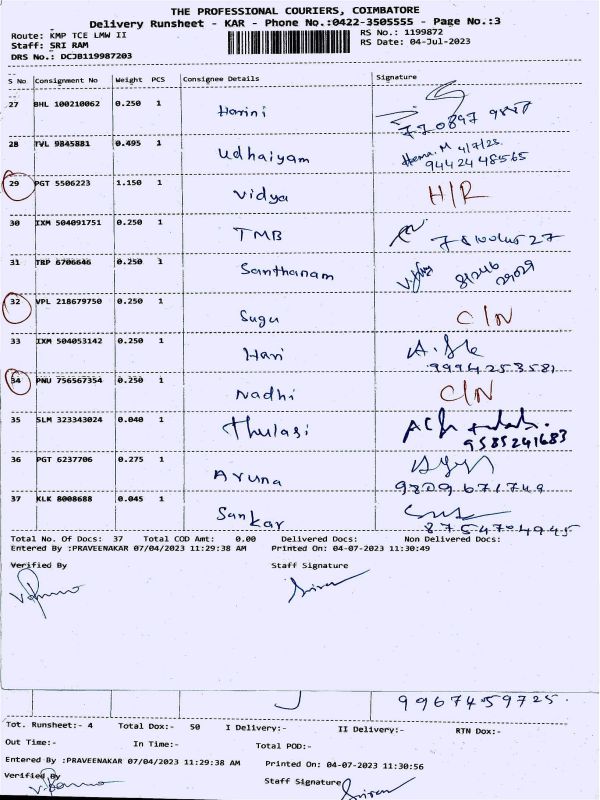 THE PROFESSIONAL COURIERS, COIMBATORE
Delivery Runsheet - KAR - Phone No.:0422-3505555 - Page No.:3
Route: KMP TCE LMW II RS No.: 1199872
Staff: SRI RAM RS Date: 04-Jul-2023
DRS No.: DCJB119987203
S No Consignment No Weight PCS Consignee Details Signature
27 BHL 100210062 0.250 1 Harini
28 TVL 9845881 0.495 1 Udhaiyam Hema. M 4/7/23. 9442448565
29 PGT 5506223 1.150 1 Vidya H/R
30 IXM 504091751 0.250 1 TMB
31 TRP 6706646 0.250 1 Santhanam
32 VPL 218679750 0.250 1 Sugu C/N
33 IXM 504053142 0.250 1 Hari 9994253581
34 PNU 756567354 0.250 1 Nadhi C/N
35 SLM 323343024 0.040 1 Thulasi 9585241683
36 PGT 6237706 0.275 1 Aruna 9809671749
37 KLK 8008688 0.045 1 Sankar 8754704945
Total No. Of Docs: 37 Total COD Amt: 0.00 Delivered Docs: Non Delivered Docs:
Entered By :PRAVEENAKAR 07/04/2023 11:29:38 AM Printed On: 04-07-2023 11:30:49
Verified By Staff Signature
9967459725.
Tot. Runsheet:- 4 Total Dox:- 50 I Delivery:- II Delivery:- RTN Dox:-
Out Time:- In Time:- Total POD:-
Entered By :PRAVEENAKAR 07/04/2023 11:29:38 AM Printed On: 04-07-2023 11:30:56
Verified By Staff Signature